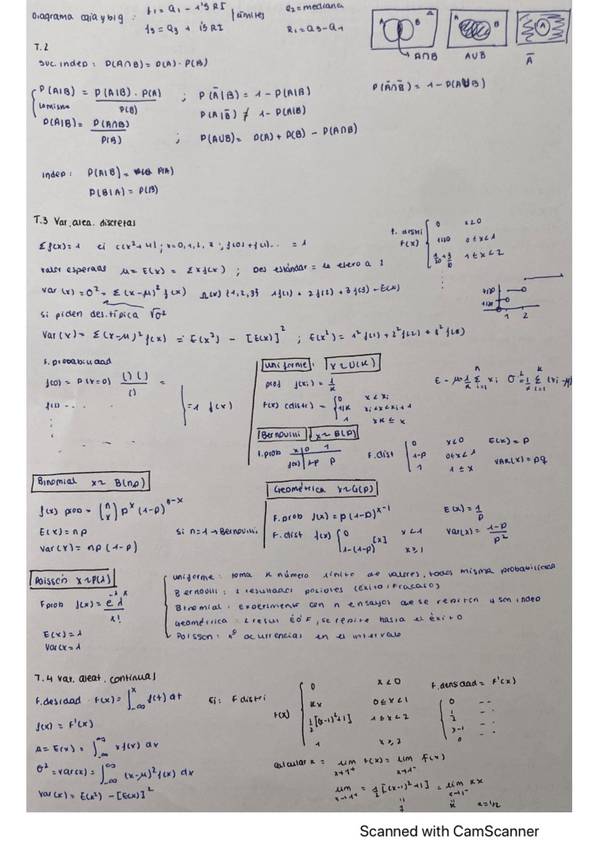 Diagrama caja y big : f1 = Q1 - 1'5 RI } límites Q2 = mediana
f3 = Q3 + 1'5 RI R1 = Q3 - Q1
A B A B A
A∩B A∪B Ā
T.2
suc. indep : P(A∩B) = P(A) · P(B)
P(A|B) = P(A|B) · P(A) / P(B) ; P(Ā|B) = 1 - P(A|B) P(Ā∩B̄) = 1 - P(A∪B)
lo mismo P(A|B̄) ≠ 1 - P(A|B)
P(A|B) = P(A∩B) / P(B) ; P(A∪B) = P(A) + P(B) - P(A∩B)
indep : P(A|B) = P(A)
P(B|A) = P(B)
T.3 Var. alea. discretas
Σ f(x) = 1 ej c(x²+4) ; x = 0, 1, 2, 3 ; f(0) + f(1) .... = 1
f. distri F(x) { 0 x<0
1/30 0≤x<1
1≤x<2
valor esperado μ = E(x) = Σ x f(x) ; Des estándar =
Var (x) = σ² = Σ(x-μ)² f(x) {1,2,3} 1 f(1) + 2 f(2) + 3 f(3) = E(x)
si piden des. típica √σ²
1 2
Var(x) = Σ(x-μ)² f(x) = E(x²) - [E(x)]² ; E(x²) = 1² f(1) +
f. probabilidad
f(0) = P(x=0) ()()/() =
f(1) .... = 1 f(x)
Uniforme : x~U(K)
prob f(xi) = 1/K E = μ = 1/K Σ xi σ² = 1/K Σ (xi - μ)
F(x) (distr) = { 0 x < xi
i/K xi ≤ x < xi+1
1 xK ≤ x
Bernoulli x~B(p)
f. prob x 0 1
f(x) 1-p p
F. dist { 0 x<0 E(x) = p
1-p 0≤x<1
1 1≤x VAR(x) = pq
Binomial x~ B(n,p)
f(x) prob = (n x) p^x (1-p)^n-x
E(x) = np si n=1 → Bernoulli
Var(x) = np (1-p)
Geométrica x~G(p)
F. prob f(x) = p(1-p)^x-1 E(x) = 1/p
F. dist f(x) { 0 x<1 Var(x) = 1-p/p²
1-(1-p)^[x] x≥1
Poisson x~P(λ)
F prob f(x) = e^-λ λ^x / x!
E(x) = λ
Var x = λ
Uniforme : toma K número finito de valores, todos misma probabilidad
Bernoulli : 2 resultados posibles (éxito/fracaso)
Binomial : Experimento con n ensayos que se repiten y son indep
Geométrica : 2 resul É ó F, se repite hasta el éxito
Poisson : nº ocurrencias en el intervalo
T.4 var. aleat. continuas
F. densidad F(x) = ∫_-∞^x f(t) dt
f(x) = F'(x)
μ = E(x) = ∫_-∞^∞ x f(x) dx
σ² = var(x) = ∫_-∞^∞ (x-μ)² f(x) dx
Var(x) = E(x²) - [E(x)]²
Ej : F distri
F(x) { 0 x<0
Kx 0≤x<1
1/2[(x-1)²+1] 1≤x<2
1 x≥2
F. densidad = F'(x)
{ 0 --
1/2 --
x-1 --
0 --
Calcular K = lim x→1⁺ F(x) = lim x→1⁻ F(x)
lim x→1⁺ = 1/2[(x-1)²+1] = lim x→1⁻ Kx
K K = 1/2
Scanned with CamScanner